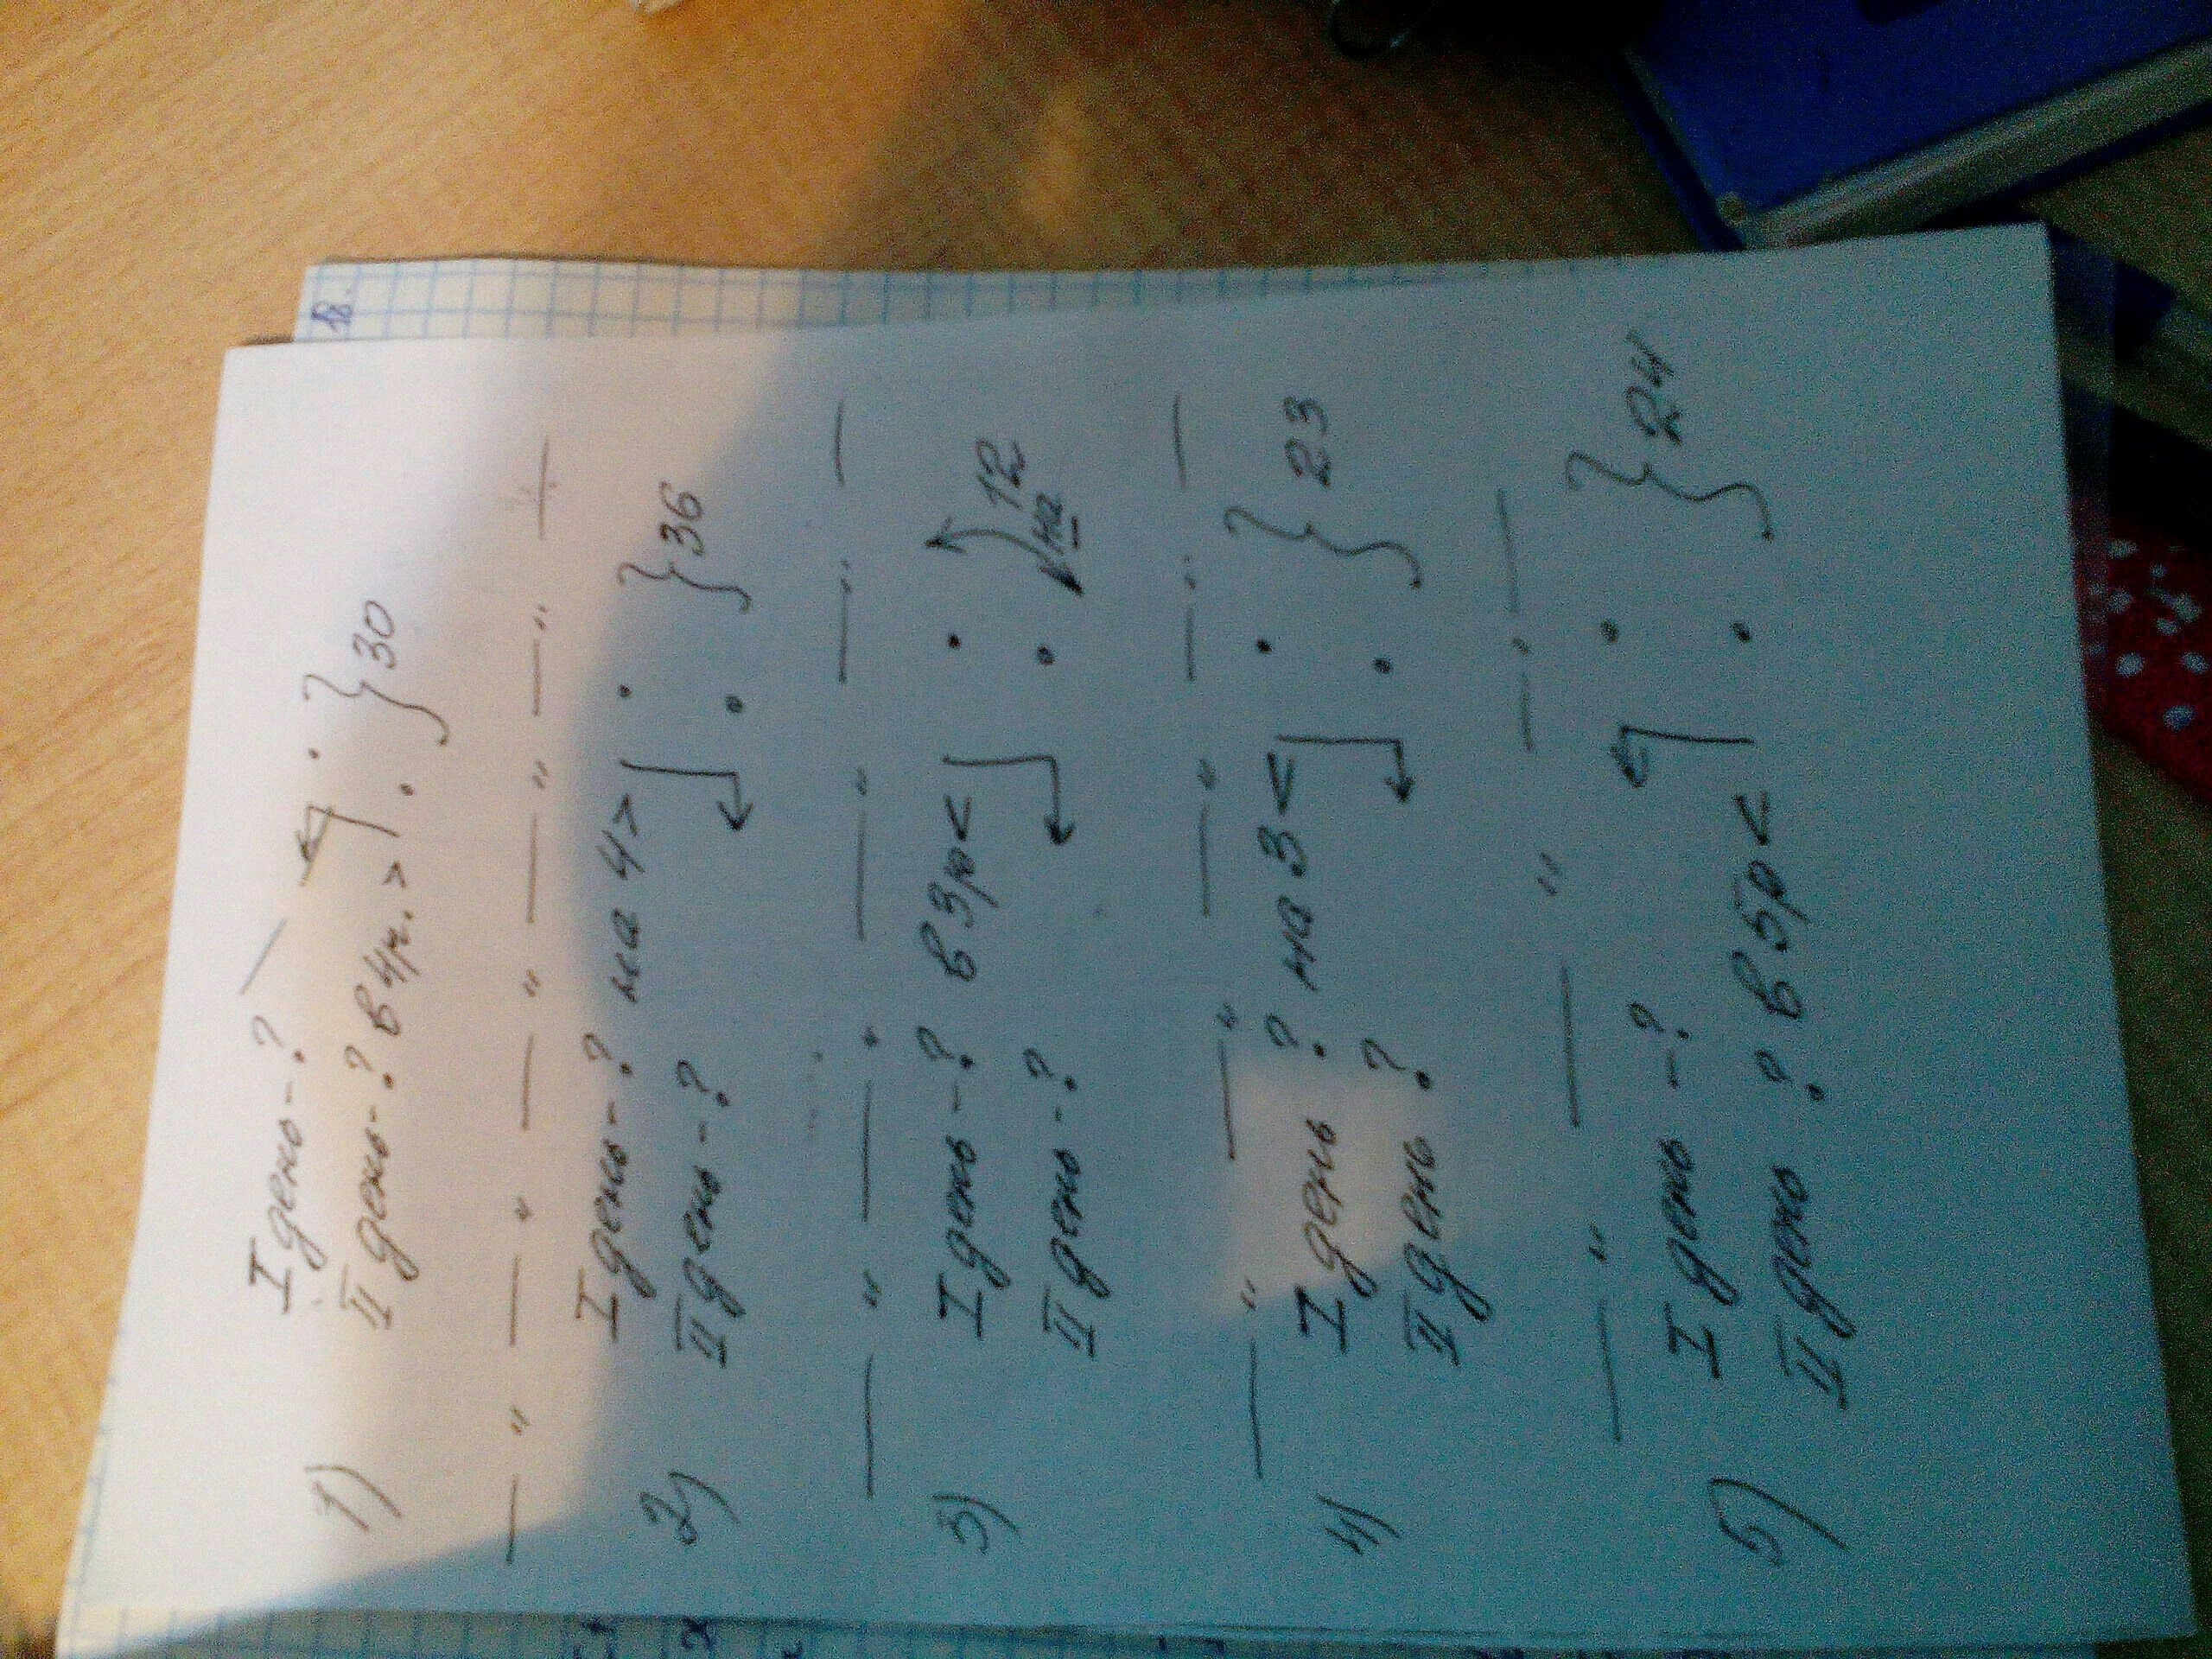 1) I день-?
II день-? в 4р. > } 30
2) I день-? на 4 >
II день-? } 36
3) I день-? в 3р <
II день-? на 12
4) I день ? на 3 <
II день ? } 23
5) I день -?
II день ? в 5р < } 24